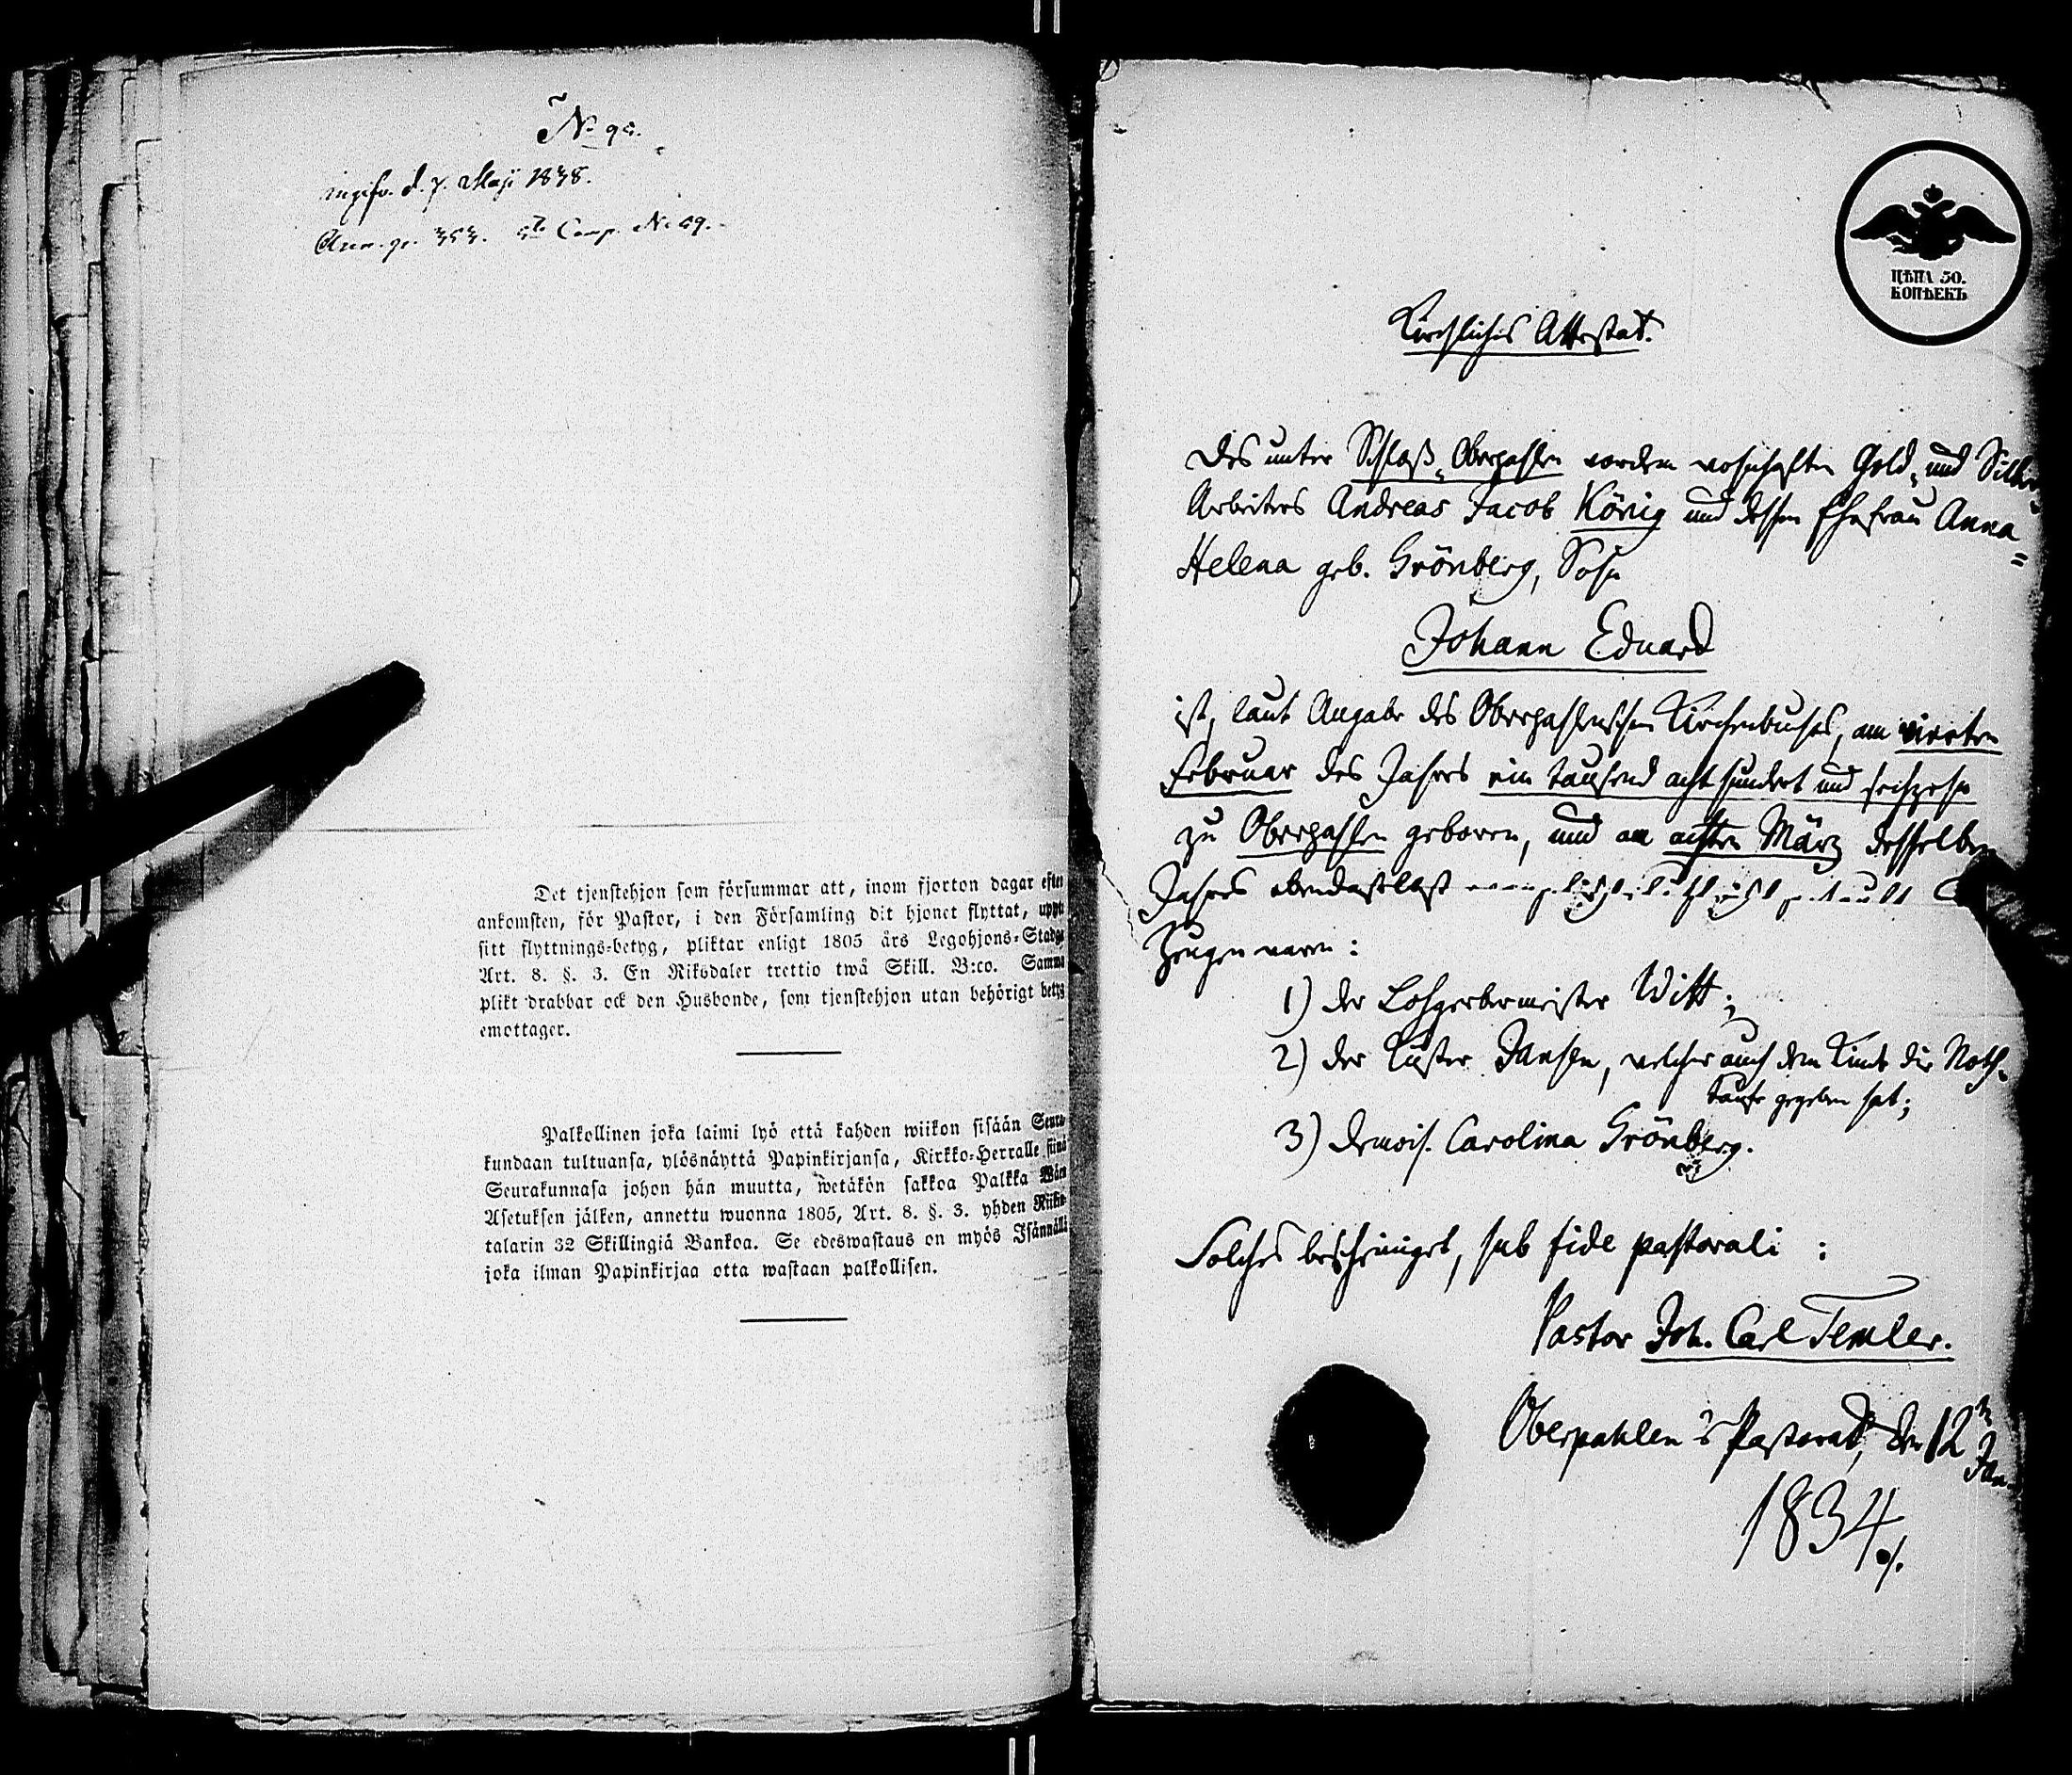 No 95.
d. 7. Maji 1838.
Comp. No 59.
Det tjenstehjon som försummar att, inom fjorton dagar efter
ankomsten, för Pastor, i den Församling dit hjonet flyttat, uppte
sitt flyttnings-betyg, pliktar enligt 1805 års Legohjons-Stadga
Art. 8. §. 3. En Riksdaler trettio twå Skill. B:co. Samma
plikt drabbar ock den Husbonde, som tjenstehjon utan behörigt betyg
emottager.
Palkollinen joka laimi lyö että kahden wiikon sisään Seura-
kundaan tultuansa, ylösnäyttä Papinkirjansa, Kirkko-Herralle siinä
Seurakunnasa johon hän muutta, wetäkön sakkoa Palkka Wäen
Asetuksen jälken, annettu wuonna 1805, Art. 8. §. 3. yhden Riikin
talarin 32 Skillingiä Bankoa. Se edeswastaus on myös Isännällä
joka ilman Papinkirjaa otta wastaan palkollisen.
ЦѢНА 50.
КОПѢЕКЪ
Kirchliches Attestat.
Des unter Schloß-Oberpahlen vordem wohnhaften Gold- und Silber-
Arbeiters Andreas Jacob König und dessen Ehefrau Anna
Helena geb. Grönberg, Sohn
Johann Eduard
ist, laut Angabe des Oberpahlenschen Kirchenbuches, am vierten
Februar des Jahres ein tausend acht hundert und sechszehn
zu Oberpahlen geboren, und am achten März desselben
Jahres ebendaselbst evangelisch-lutherisch getauft
Zeugen waren:
1) der Lohgerbermeister Witt;
2) der Küster Jansen, welcher auch dem Kinde die Noth-
taufe gegeben hat;
3) Demois. Carolina Grönberg.
Solches bescheiniget, sub fide pastorali:
Pastor Joh. Carl Temler.
Oberpahlen's Pastorat, den 12n Jan.
1834.